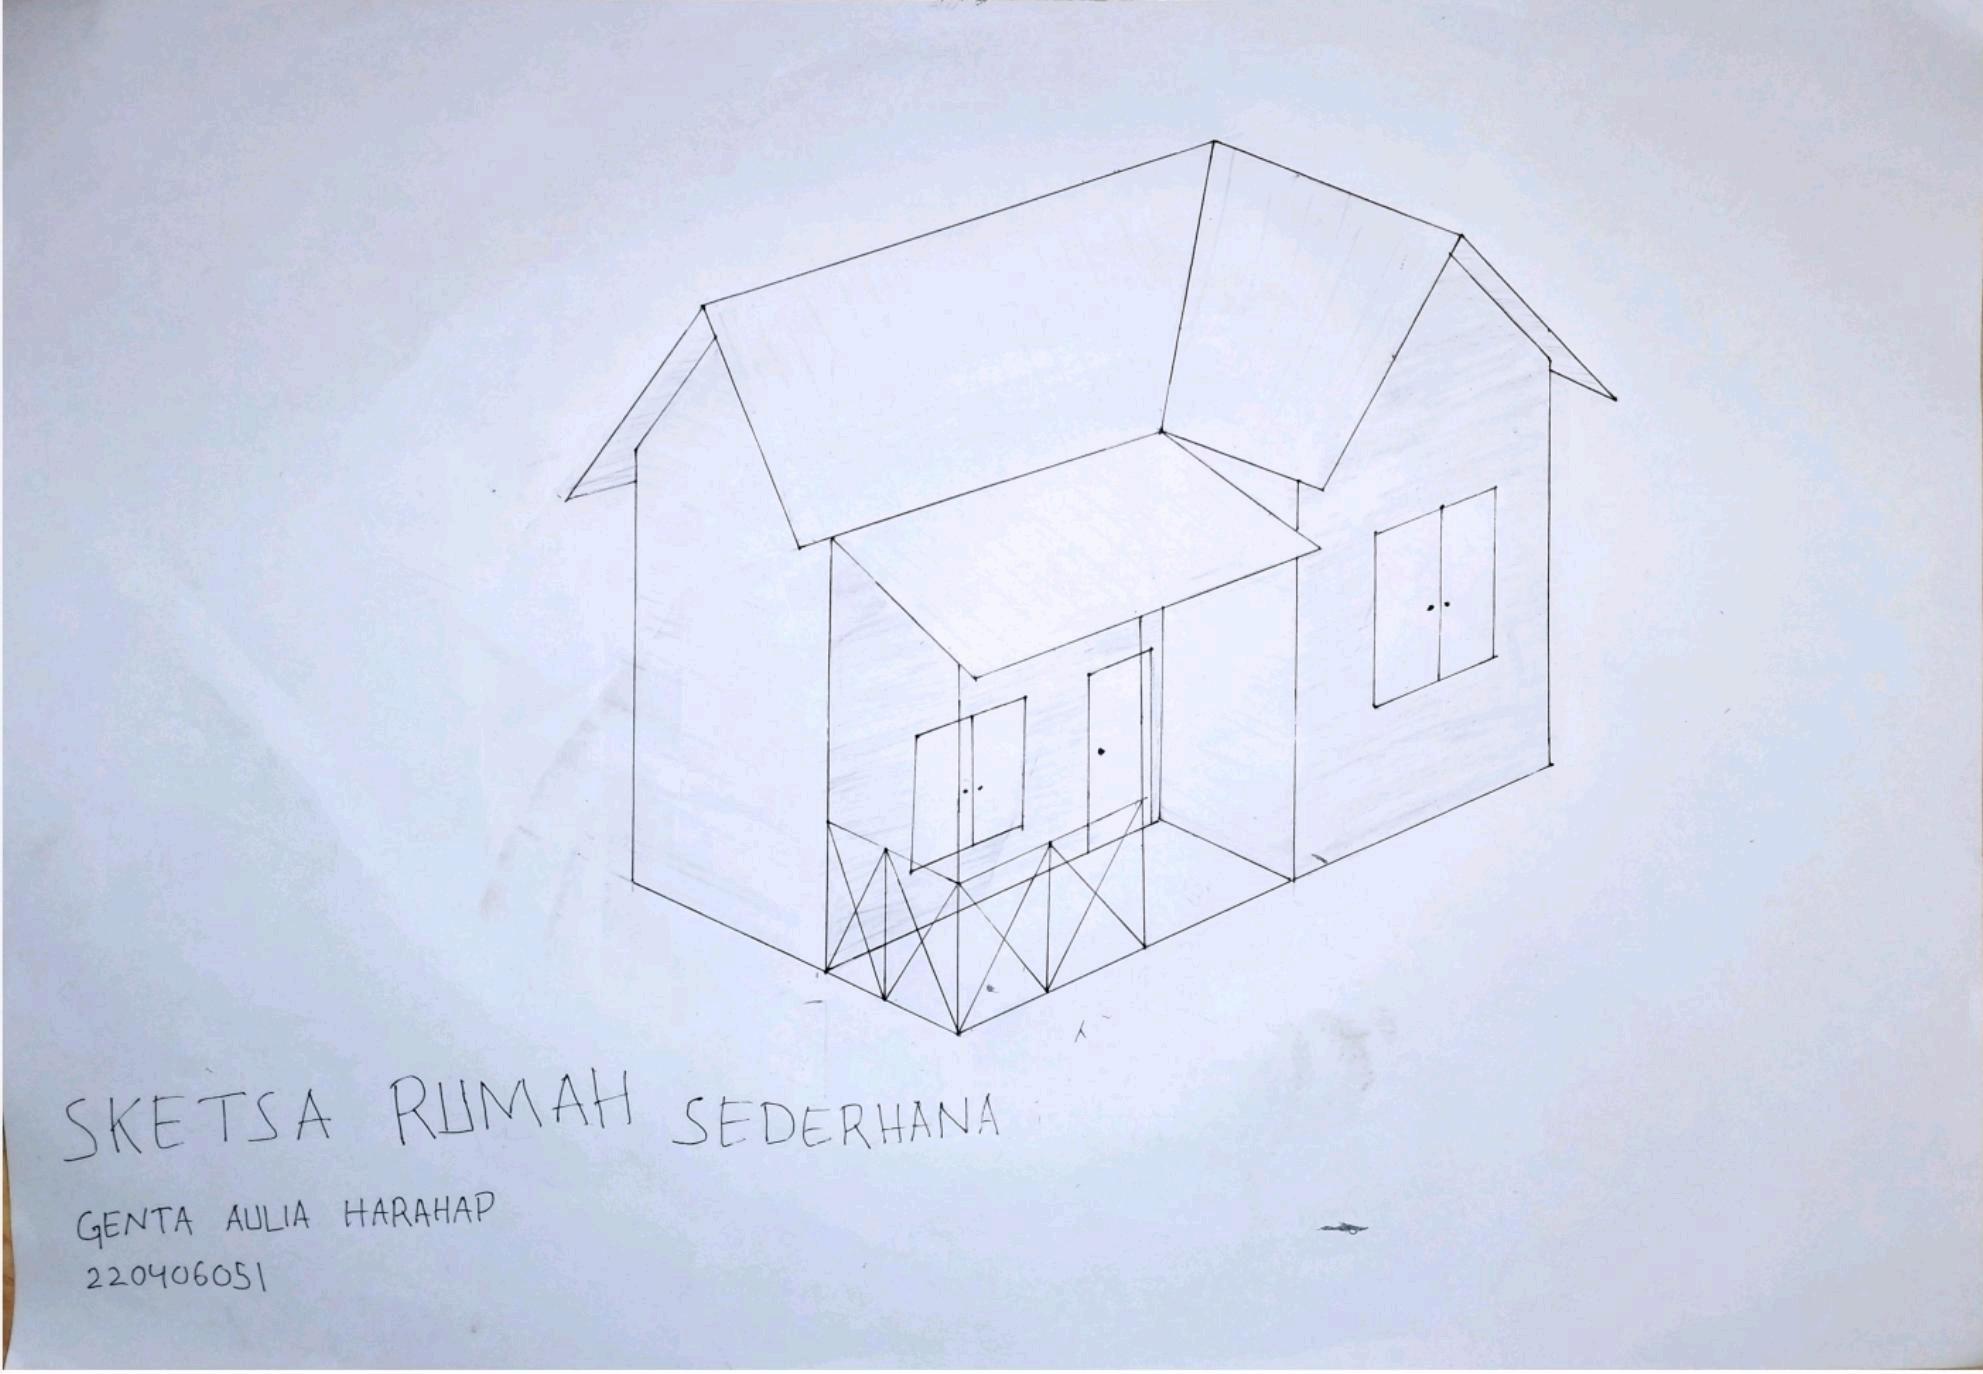 SKETSA RUMAH SEDERHANA
GENTA AULIA HARAHAP
220406051